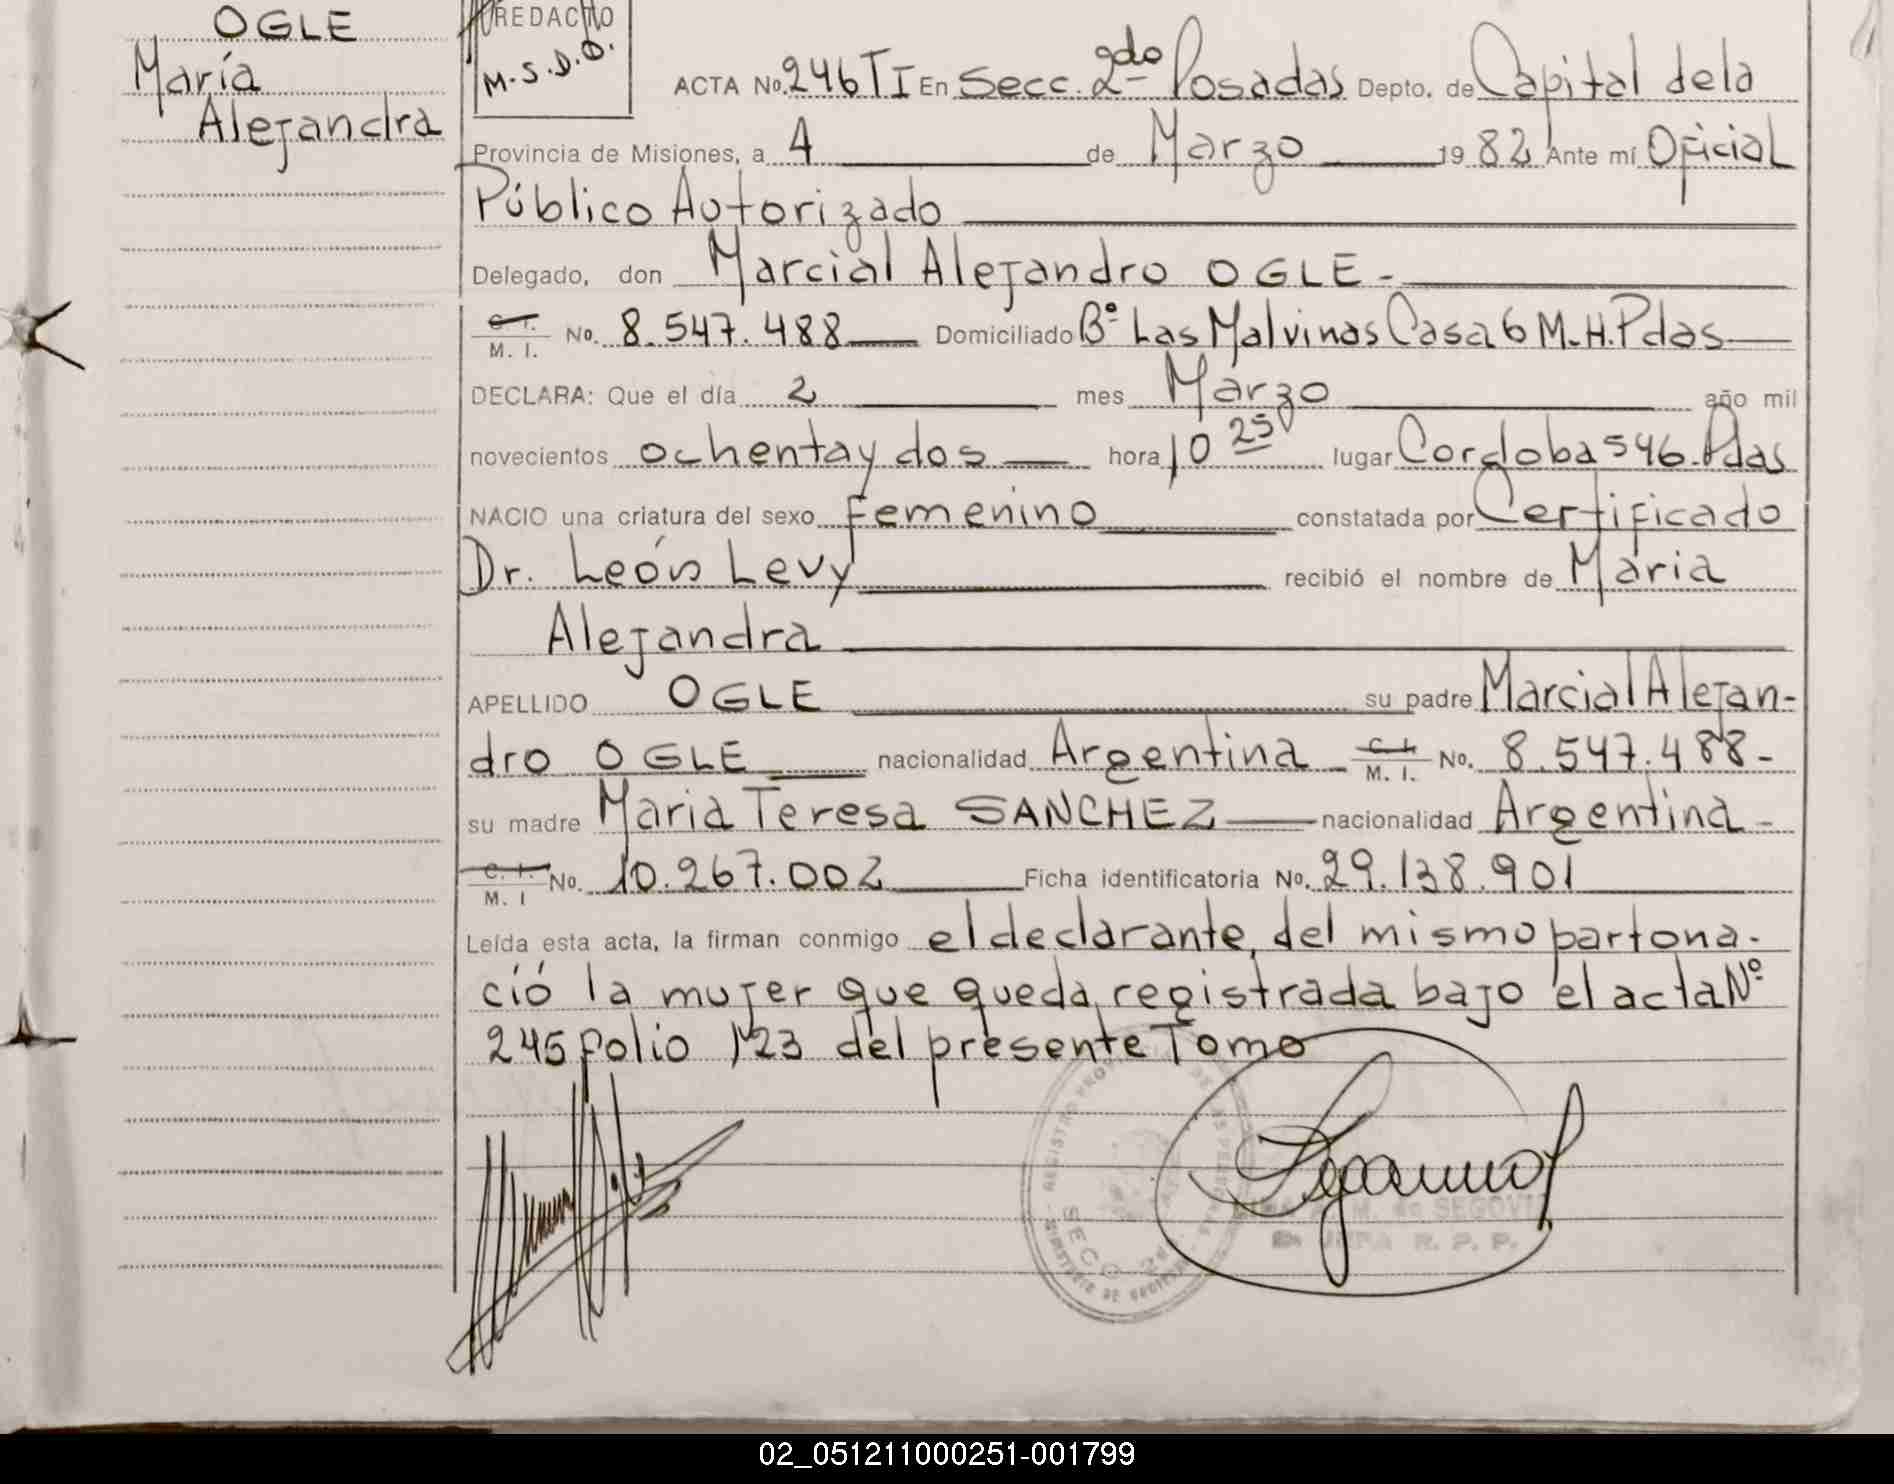 OGLE
María
Alejandra
REDACTO
M.S.D.O.
ACTA No. 246 TI En Secc. 2do Posadas Depto. de Capital de la
Provincia de Misiones, a 4 de Marzo 19 82 Ante mí Oficial
Público Autorizado
Delegado, don Marcial Alejandro OGLE -
C. I. M. I. No. 8.547.488 Domiciliado Bº Las Malvinas Casa 6 M.H. Pdas
DECLARA: Que el día 2 mes Marzo año mil
novecientos ochenta y dos hora 10 25 lugar Cordoba 546. Pdas
NACIO una criatura del sexo Femenino constatada por Certificado
Dr. León Levy recibió el nombre de María
Alejandra
APELLIDO OGLE su padre Marcial Alejan-
dro OGLE nacionalidad Argentina C. I. M. I. No. 8.547.488-
su madre Maria Teresa SANCHEZ nacionalidad Argentina -
C. I. M. I No. 10.267.002 Ficha identificatoria No. 29.138.901
Leída esta acta, la firman conmigo el declarante, del mismo parto na-
ció la mujer que queda registrada bajo el acta Nº
245 folio 123 del presente Tomo
REGISTRO PROV DE LAS PERSONAS
SECC 2da
MINISTERIO DE GOBIERNO
M. de SEGOVIA
JEFA R. P. P.
02_051211000251-001799